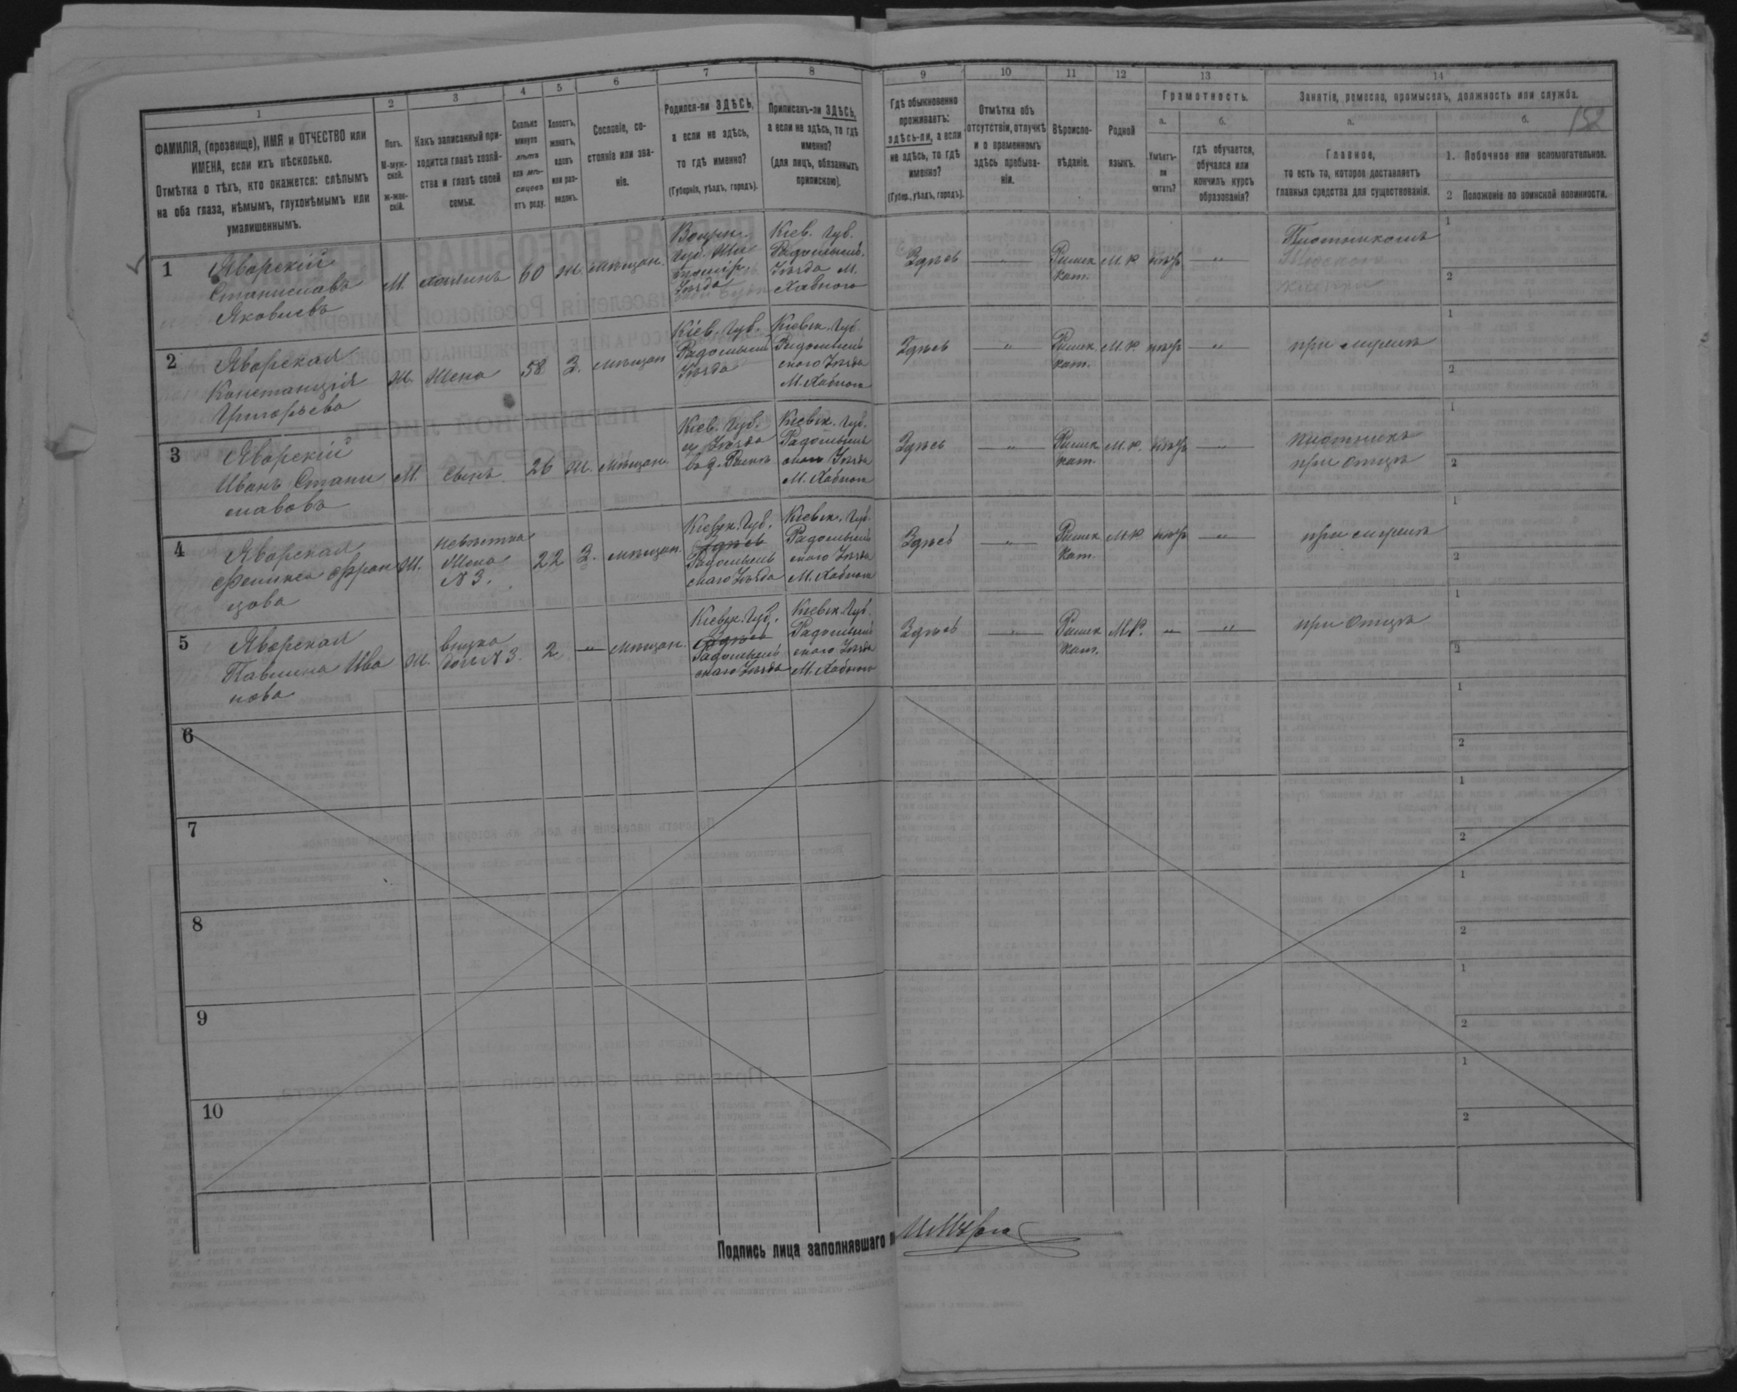 1
2
3
4
5
6
7
8
9
10
11
12
13
14
ФАМИЛІЯ, (прозвище), ИМЯ и ОТЧЕСТВО или
ИМЕНА, если ихъ нѣсколько.
Отмѣтка о тѣхъ, кто окажется: слѣпымъ
на оба глаза, нѣмымъ, глухонѣмымъ или
умалишеннымъ.
Полъ.
М-муж-
ской.
Ж-жен-
скій.
Какъ записанный при-
ходится главѣ хозяй-
ства и главѣ своей
семьи.
Сколько
минуло
лѣтъ
или мѣ-
сяцевъ
отъ роду.
Холостъ,
женатъ,
вдовъ
или раз-
веденъ.
Сословіе, со-
стояніе или зва-
ніе.
Родился-ли ЗДѢСЬ,
а если не здѣсь,
то гдѣ именно?
(Губернія, уѣздъ, городъ).
Приписанъ-ли ЗДѢСЬ,
а если не здѣсь, то гдѣ
именно?
(для лицъ, обязанныхъ
припискою).
Гдѣ обыкновенно
проживаетъ:
здѣсь-ли, а если
не здѣсь, то гдѣ
именно?
(Губер., уѣздъ, городъ).
Отмѣтка объ
отсутствіи, отлучкѣ
и о временномъ
здѣсь пребыва-
ніи.
Вѣроиспо-
вѣданіе.
Родной
языкъ.
Грамотность.
а.
б.
Умѣетъ-
ли
читать?
гдѣ обучается,
обучался или
кончилъ курсъ
образованія?
Занятіе, ремесло, промыселъ, должность или служба.
а.
б.
152
Главное,
то есть то, которое доставляетъ
главныя средства для существованія.
1. Побочное или вспомогательное.
2 Положеніе по воинской повинности.
1
Яворскій
Станиславъ
Яковлевъ
М.
хозяинъ
60
ж.
мѣщан.
уѣзда
Кіев. Губ.
Радомышл.
Уѣзда М.
Хабного
Здѣсь
Римск
кат.
1
Плотникомъ
2
2
Яворская
Констанція
Григорьева
ж.
жена
58
З.
мѣщан
Кіев. Губ.
Радомышл
Уѣзда
Кіевск. Губ.
Радомышль
скаго Уѣзда
М. Хабного
Здѣсь
"
Римск
кат.
при мужѣ
1
2
3
Яворскій
Иванъ Стани
славовъ
М
сынъ
26
ж.
мѣщан.
Кіев. Губ.
и Уѣзда
Кіевск. Губ.
Радомышль
скаго Уѣзда
М. Хабного
Здѣсь
"
Римск
кат.
плотникъ
при отцѣ
1
2
4
Яворская
Фелиція Фран
цова
ж.
невѣстка
жена
N 3.
22
З.
мѣщан.
Кіевск. Губ.
Здѣсь
Радомышль
скаго Уѣзда
Кіевск. Губ.
Радомышль
скаго Уѣзда
М. Хабного
Здѣсь
"
Римск
кат.
при мужѣ
1
2
5
Яворская
Павлина Ива
нова
ж.
внука
дочь N 3.
2
"
мѣщан.
Кіевск. Губ.
Здѣсь
Радомышль
скаго Уѣзда
Кіевск. Губ.
Радомышль
скаго Уѣзда
М. Хабного
Здѣсь
"
Римск
кат.
"
"
при отцѣ
1
2
6
1
2
7
1
2
8
1
2
9
1
2
10
1
2
Подпись лица заполнявшаго